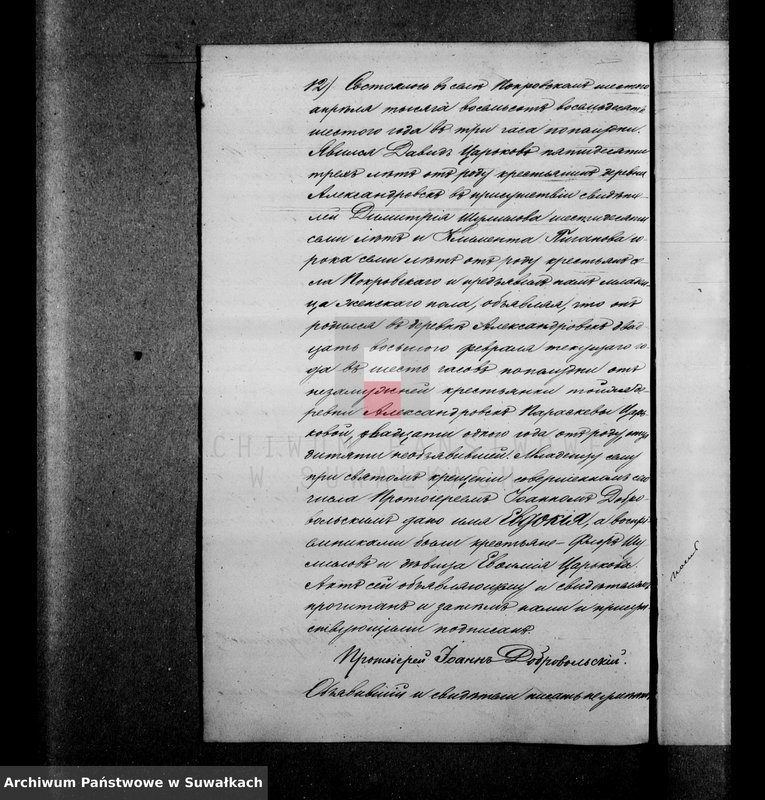 12) Состоялось въ селѣ Покровскомъ шестого
апрѣля тысяча восемьсотъ восемьдесятъ
шестого года въ три часа пополудни.
Явился Давидъ Царьковъ пятидесяти
трехъ лѣтъ отъ роду крестьянинъ деревни
Александровскъ въ присутствіи свидѣте-
лей Димитрія Шумилова шестидесяти
семи лѣтъ и Климента Пиганова со-
рока семи лѣтъ отъ роду крестьянъ се-
ла Покровскаго и предъявилъ намъ младен-
ца женскаго пола, объявляя, что онъ
родился въ деревнѣ Александровскъ двад-
цать восьмого февраля текущаго го-
да въ шесть часовъ пополудни отъ
незамужней крестьянки той же де-
ревни Александровскъ Параскевы Царь-
ковой, двадцати одного года отъ роду, отца
дитяти необъявившей. Младенцу сему
при святомъ крещеніи совершенномъ сего
числа Протоіереемъ Іоанномъ Добро-
вольскимъ дано имя Евдокія, а воспрі-
емниками были крестьяне - Флоръ Шу-
миловъ и дѣвица Евфимія Царькова.
Актъ сей объявляющему и свидѣтелямъ
прочитанъ и затѣмъ нами и присут-
ствующими подписанъ.
Протоіерей Іоаннъ Добровольскій.
Объявившій и свидѣтели писать не умѣютъ.
ARCHIWUM PAŃSTWOWE
W SUWAŁKACH
Archiwum Państwowe w Suwałkach